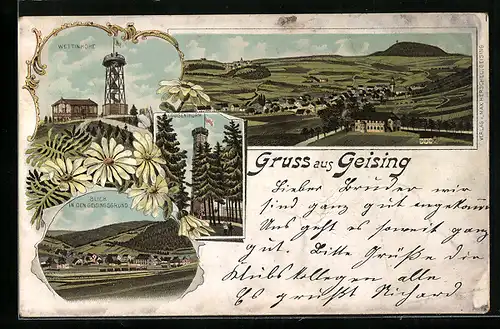 WETTINHÖHE
LOUISENTHURM
BLICK
IN DEN GEISINGGRUND
VERLAG V. MAX HERSCHEL, GEISING
Gruss aus Geising
Lieber Bruder wir
sind ganz gut angekomm
Uns geht es soweit ganz
gut. Bitte Grüße die
Klubskollegen alle
Es grüßt Richard